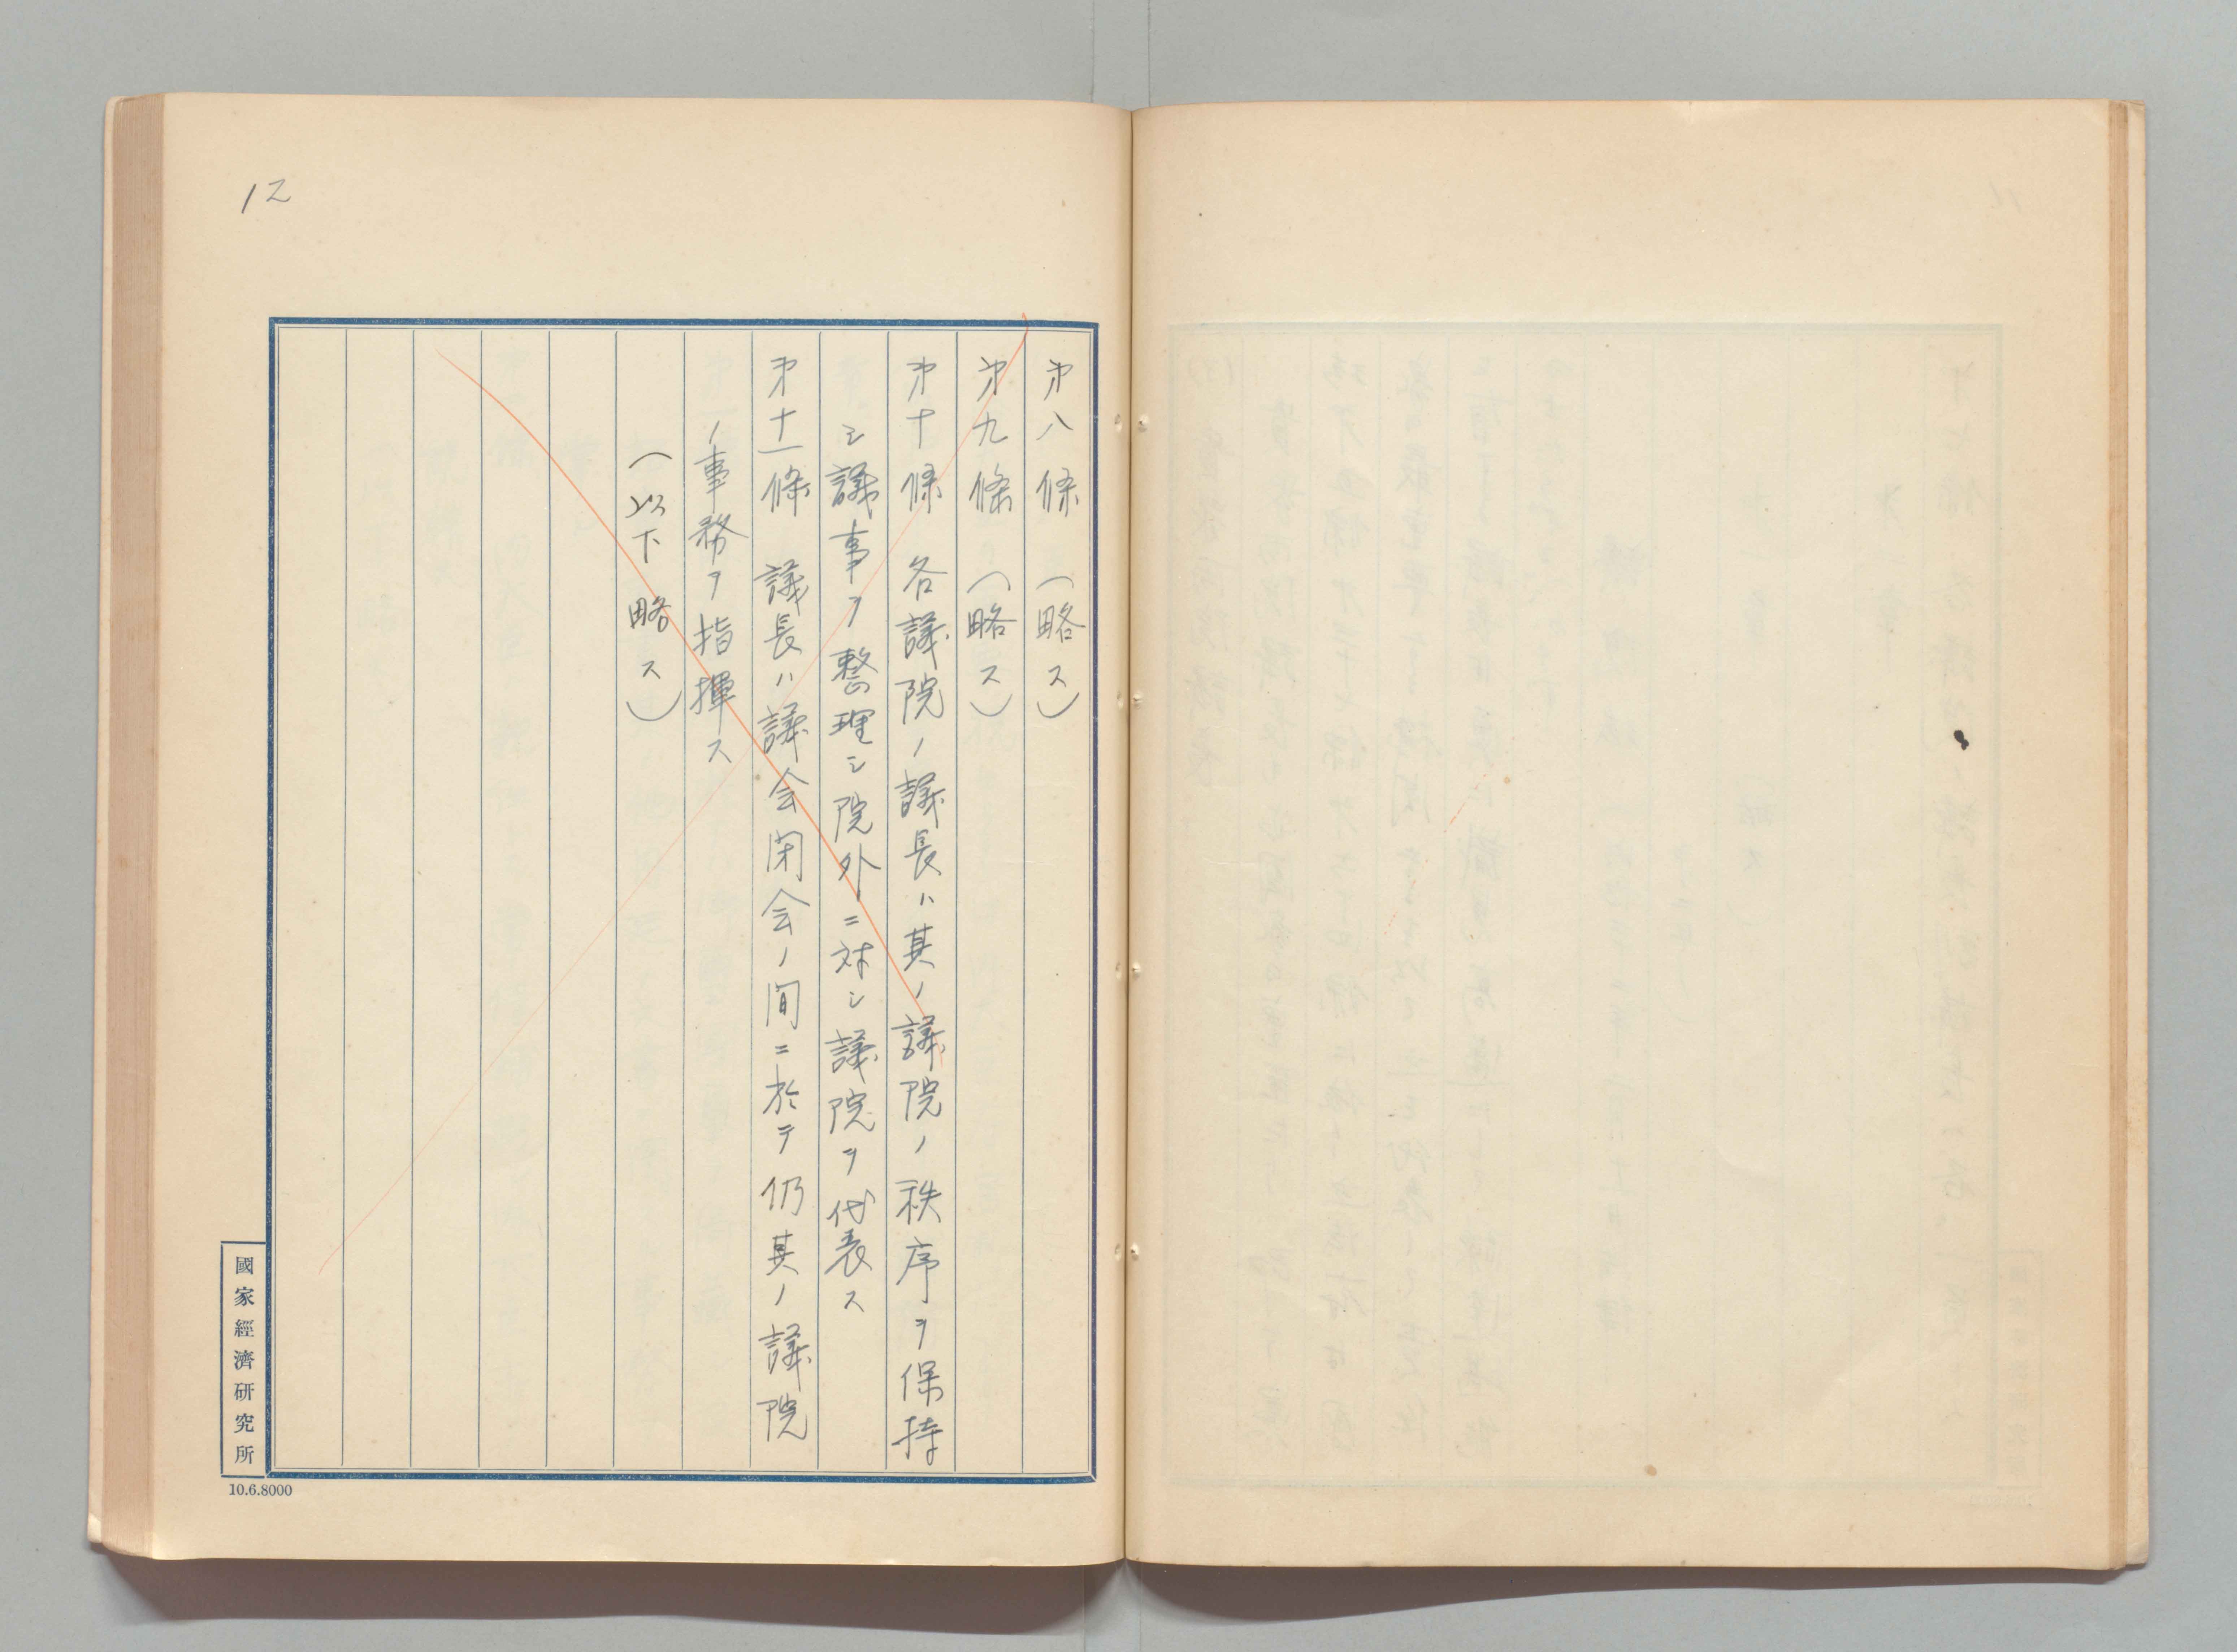 12
第八條　（略ス）
第九條　（略ス）
第十條　各議院ノ議長ハ其ノ議院ノ秩序ヲ保持
シ議事ヲ整理シ院外ニ対シ議院ヲ代表ス
第十一條　議長ハ議会閉会ノ間ニ於テ仍其ノ議院
ノ事務ヲ指揮ス
（以下略ス）
國家經濟研究所
10.6.8000